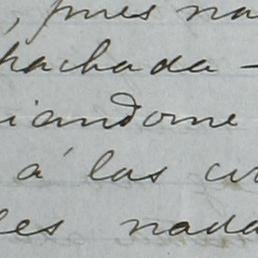 , pues na
hachada -
iandome
á las cu
les nada